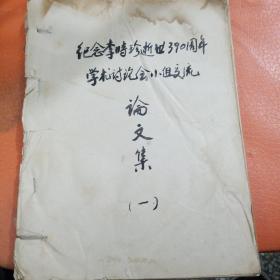 纪念李時珍逝世390周年
学术讨论会小组交流
論
文
集
(一)